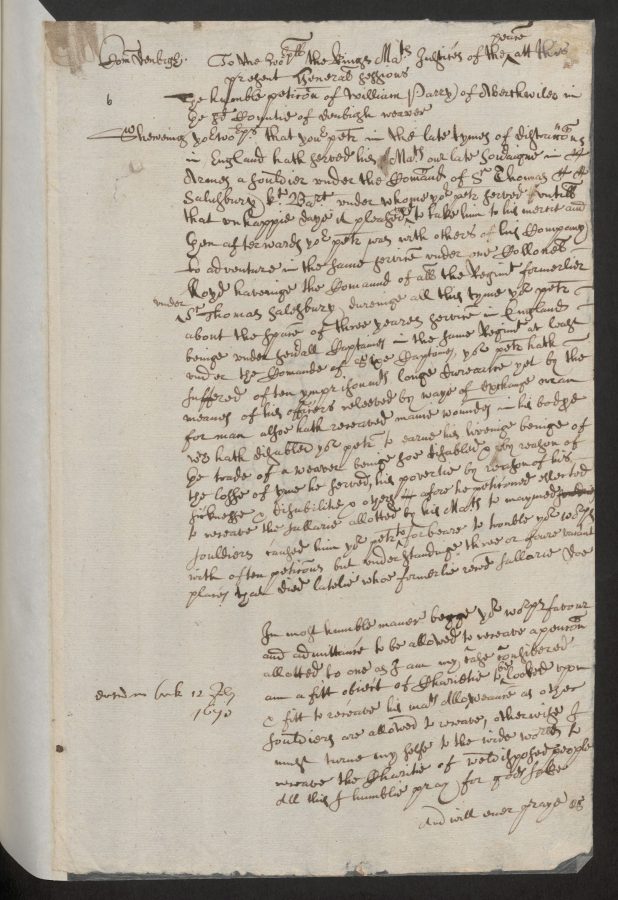 Com Denbigh. To the wor:pll the Kings Mats Justices of the peace att this
present Generall sessions
6 The humble peticon of William Parry of Aberchwiler in
the sd Countie of denbigh weaver
Sheweing yor worpps that yor petr in the late tymes of distraccons
in England hath served his Matie our late Soveraigne in
Armes a souldier under the Comand of Sr Thomas
Salusbury kt Bart under whome yor petr served untill
that unhappie daye it pleased to take him to his mercie and
then afterwards yor petr was with others of his Company
to adventure in the same service under one Collonel
lloyd haveinge the Comaund of all the Regimt formerlie
under Sr Thomas Salesbury dureinge all this tyme yor petr
about the space of three yeares service in England
beinge under severall Captaines in the same Regimt at least
under the Comande of Sixe Captaines, yor petr hath
suffered often ymprisonmts longe dureance yet by the
meanes of his officers releeved by waye of Exchange man
for man alsoe hath receaved manie wounds in his bodye
wch hath disabled yor petr to earne his liveinge beinge of
the trade of a weaver beinge soe disabled & by reason of
the losse of tyme he served, his povertie by reason of his
sicknesse & disabilitie & others afore he petitioned ellected
to receave the sallarie allotted by his Matie to maymed
souldiers caused him yor petr to forbeare to trouble yor worpps
with often peticons but understandinge three or foure vacant
places that died latelie whoe formerlie recd sallarie doe
In most humble maner begge yor worpps favour
and admittance to be allowed to receave a pencon
allotted to one as I am my case considered
am a fitt obiect of Charitie to be looked upon
& fitt to receave his maties alloweance as other
souldiers are allowed to receave, otherwise I
must turne my selfe to the wide world to
receave the Charitie of weldisposed people
All this I humblie pray for gods sake
And will ever praye &c
12
1670